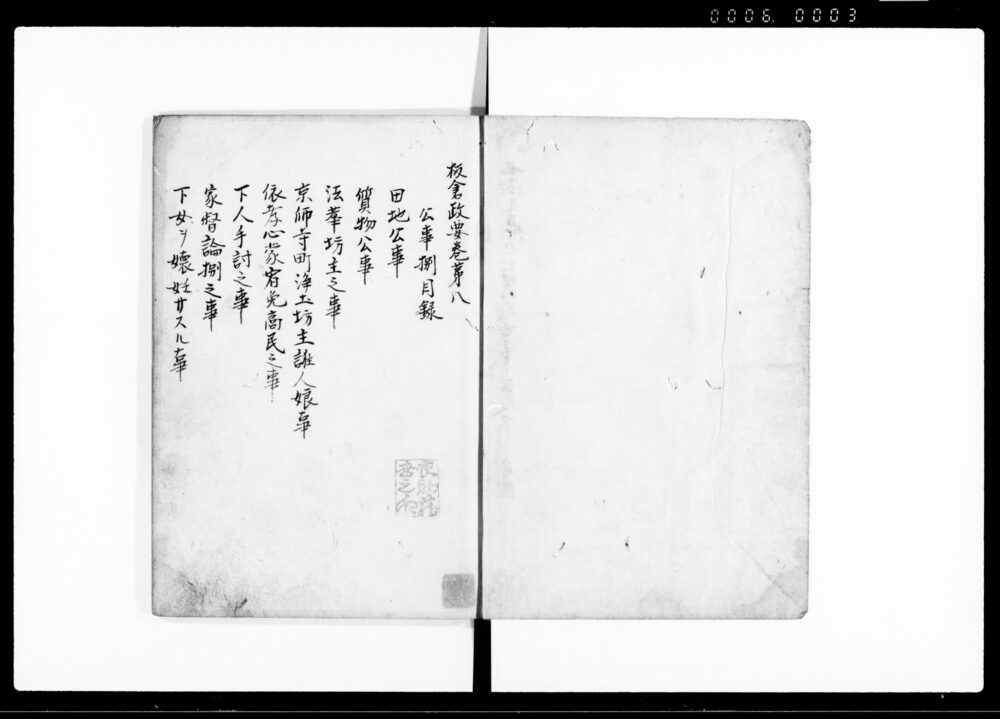 0006 0003
板倉政要巻第八
公事捌目録
田地公事
質物公事
法華坊主之事
京師寺町浄土坊主誑人娘事
依孝心蒙宥免高民之事
下人手討之事
家督論捌之事
下女ヲ懐妊サスル事